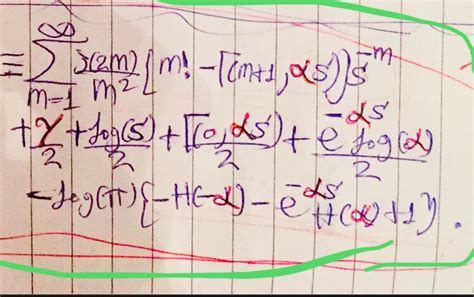 ≡ ∑_{m=1}^{∞} ζ(2m)/m² [m! - Γ(m+1, αs)] s^{-m}
+ γ/2 + log(s)/2 + Γ(0, αs)/2 + e^{-αs} log(α)/2
- log(π) {-H(-α) - e^{-αs} H(α) + 1}.